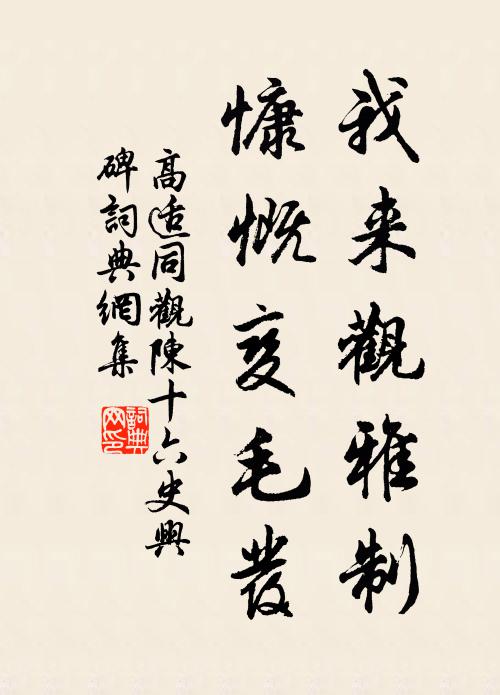 我来觀雅制
慷慨变毛發
高适同觀陳十六史興
碑詞典網集
詞典
网印